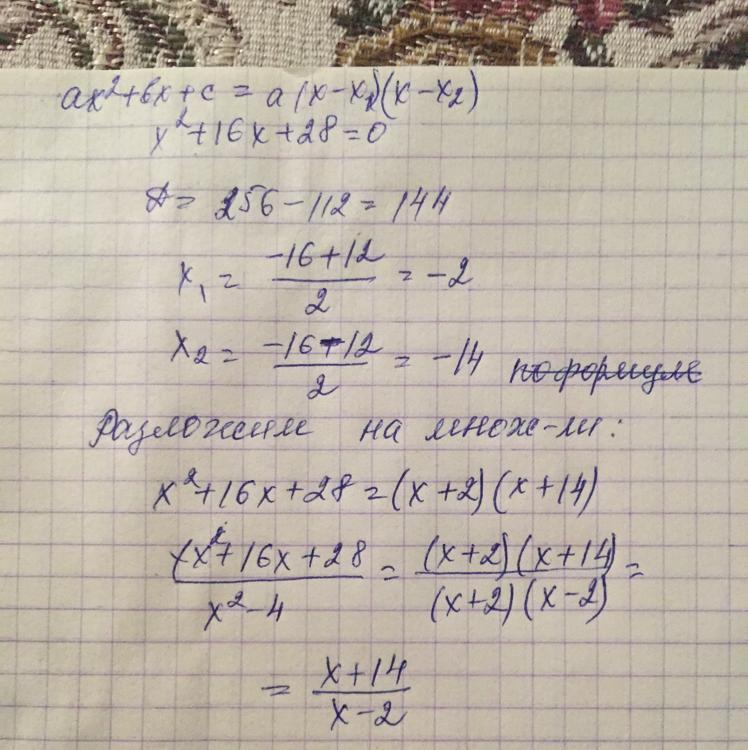 ax²+bx+c = a(x-x₁)(x-x₂)
x²+16x+28=0
D = 256-112=144
x₁ = (-16+12)/2 = -2
x₂ = (-16-12)/2 = -14 по формуле
Разложим на множ-ли:
x²+16x+28=(x+2)(x+14)
(x²+16x+28)/(x²-4) = ((x+2)(x+14))/((x+2)(x-2)) =
= (x+14)/(x-2)